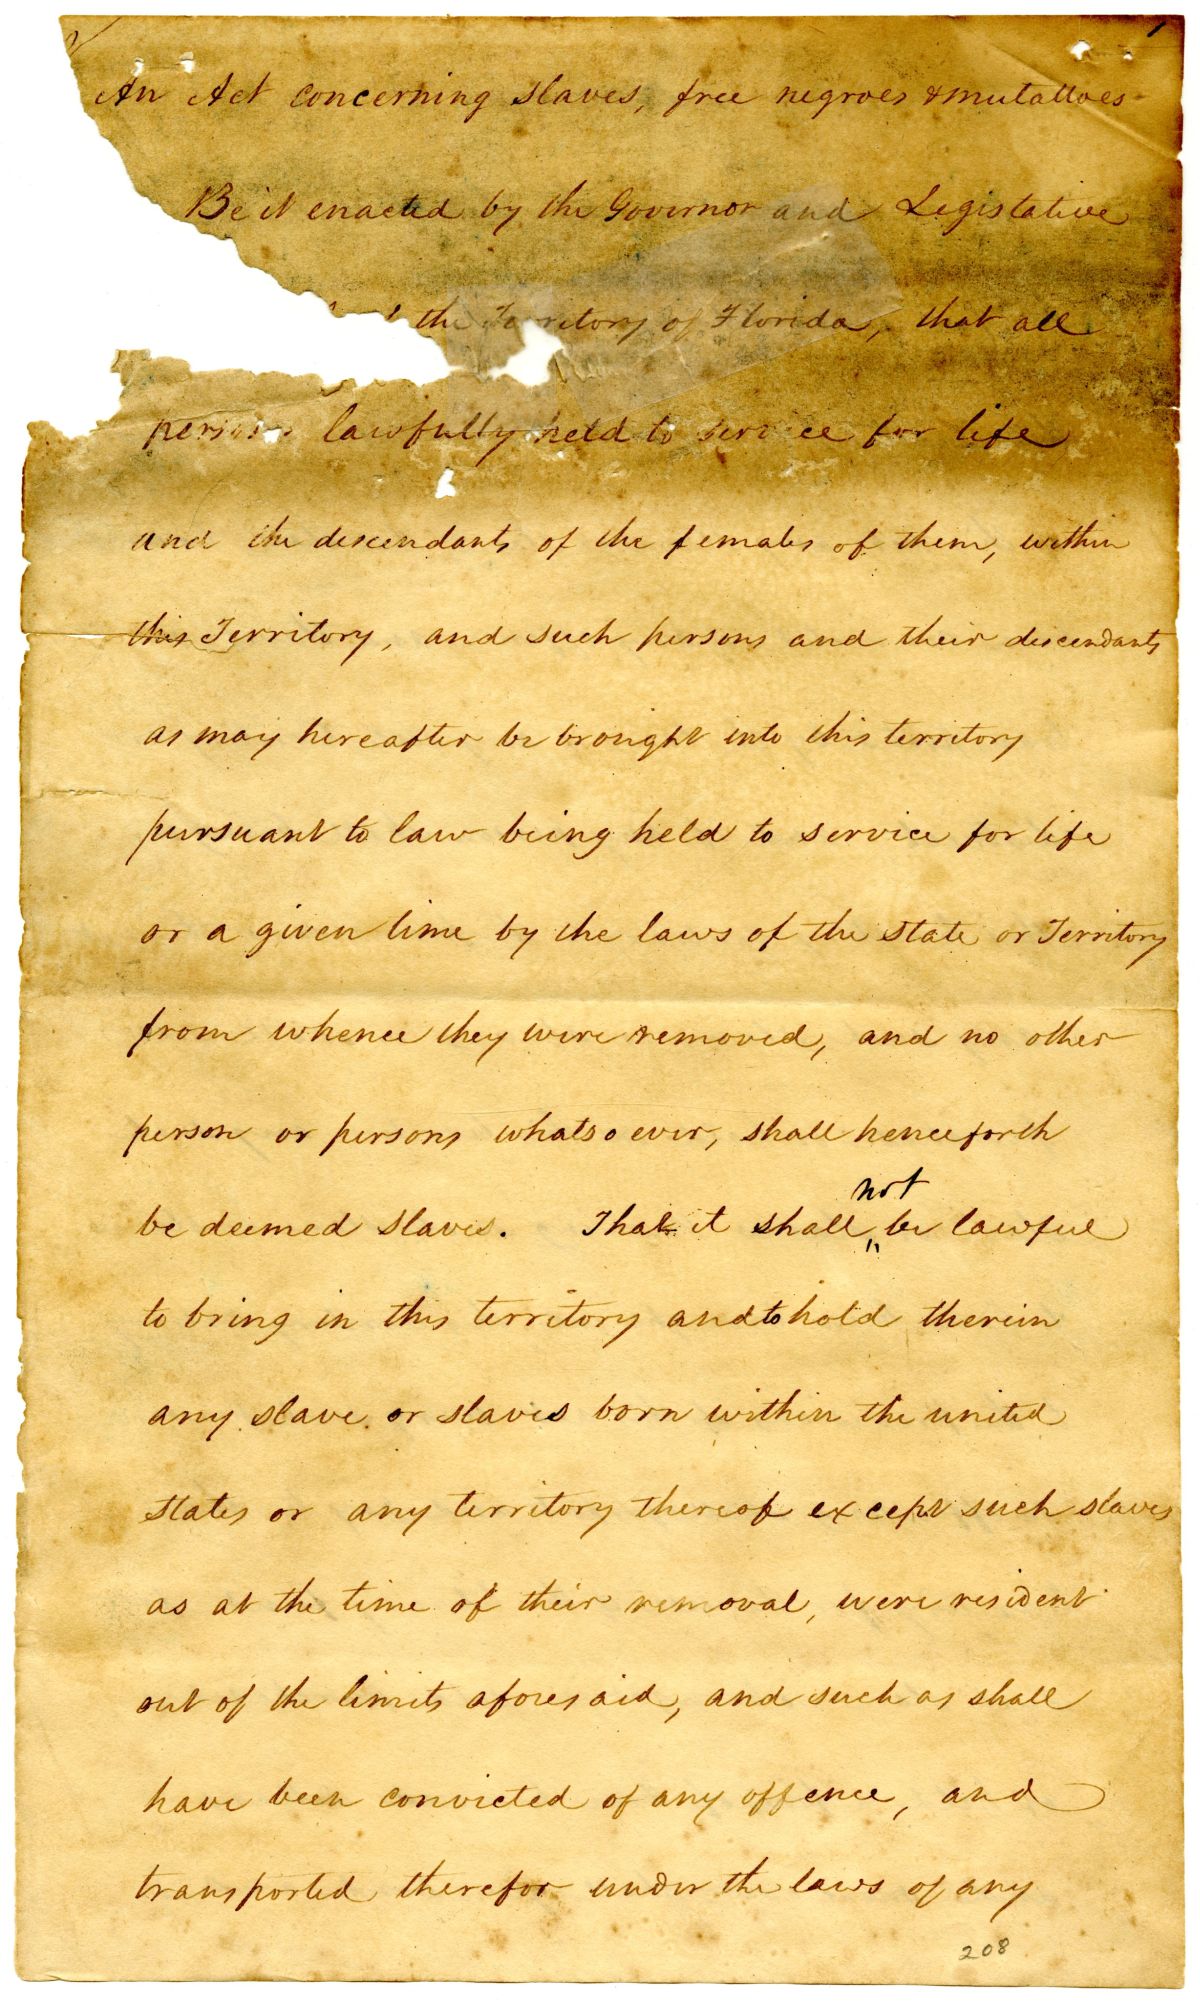 An Act concerning slaves, free negroes & mulattoes
Be it enacted by the Governor and Legislative
the Territory of Florida, that all
persons lawfully held to service for life
and the descendants of the females of them, within
this Territory, and such persons and their descendants
as may hereafter be brought into this territory
pursuant to law being held to service for life
or a given time by the laws of the State or Territory
from whence they were removed, and no other
person or persons whatsoever, shall henceforth
not
be deemed slaves. That it shall be lawful
to bring in this territory and to hold therein
any slave or slaves born within the united
States or any territory thereof except such slaves
as at the time of their removal, were resident
out of the limits aforesaid, and such as shall
have been convicted of any offence, and
transported therefor under the laws of any
208